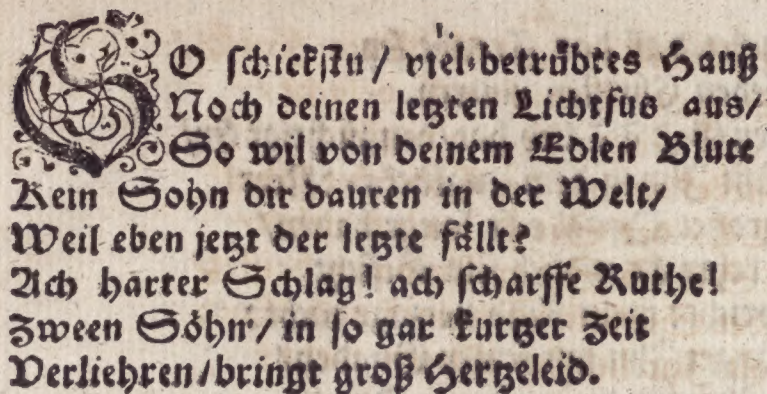 SO schickstu / viel-betrübtes Hauß
Noch deinen letzten Lichtfus aus/
So wil von deinem Edlen Blute
Kein Sohn dir dauren in der Welt/
Weil eben jetzt der letzte fällt?
Ach harter Schlag! ach scharffe Ruthe!
Zween Söhn'/ in so gar kurtzer Zeit
Verliehren/bringt groß Hertzeleid.